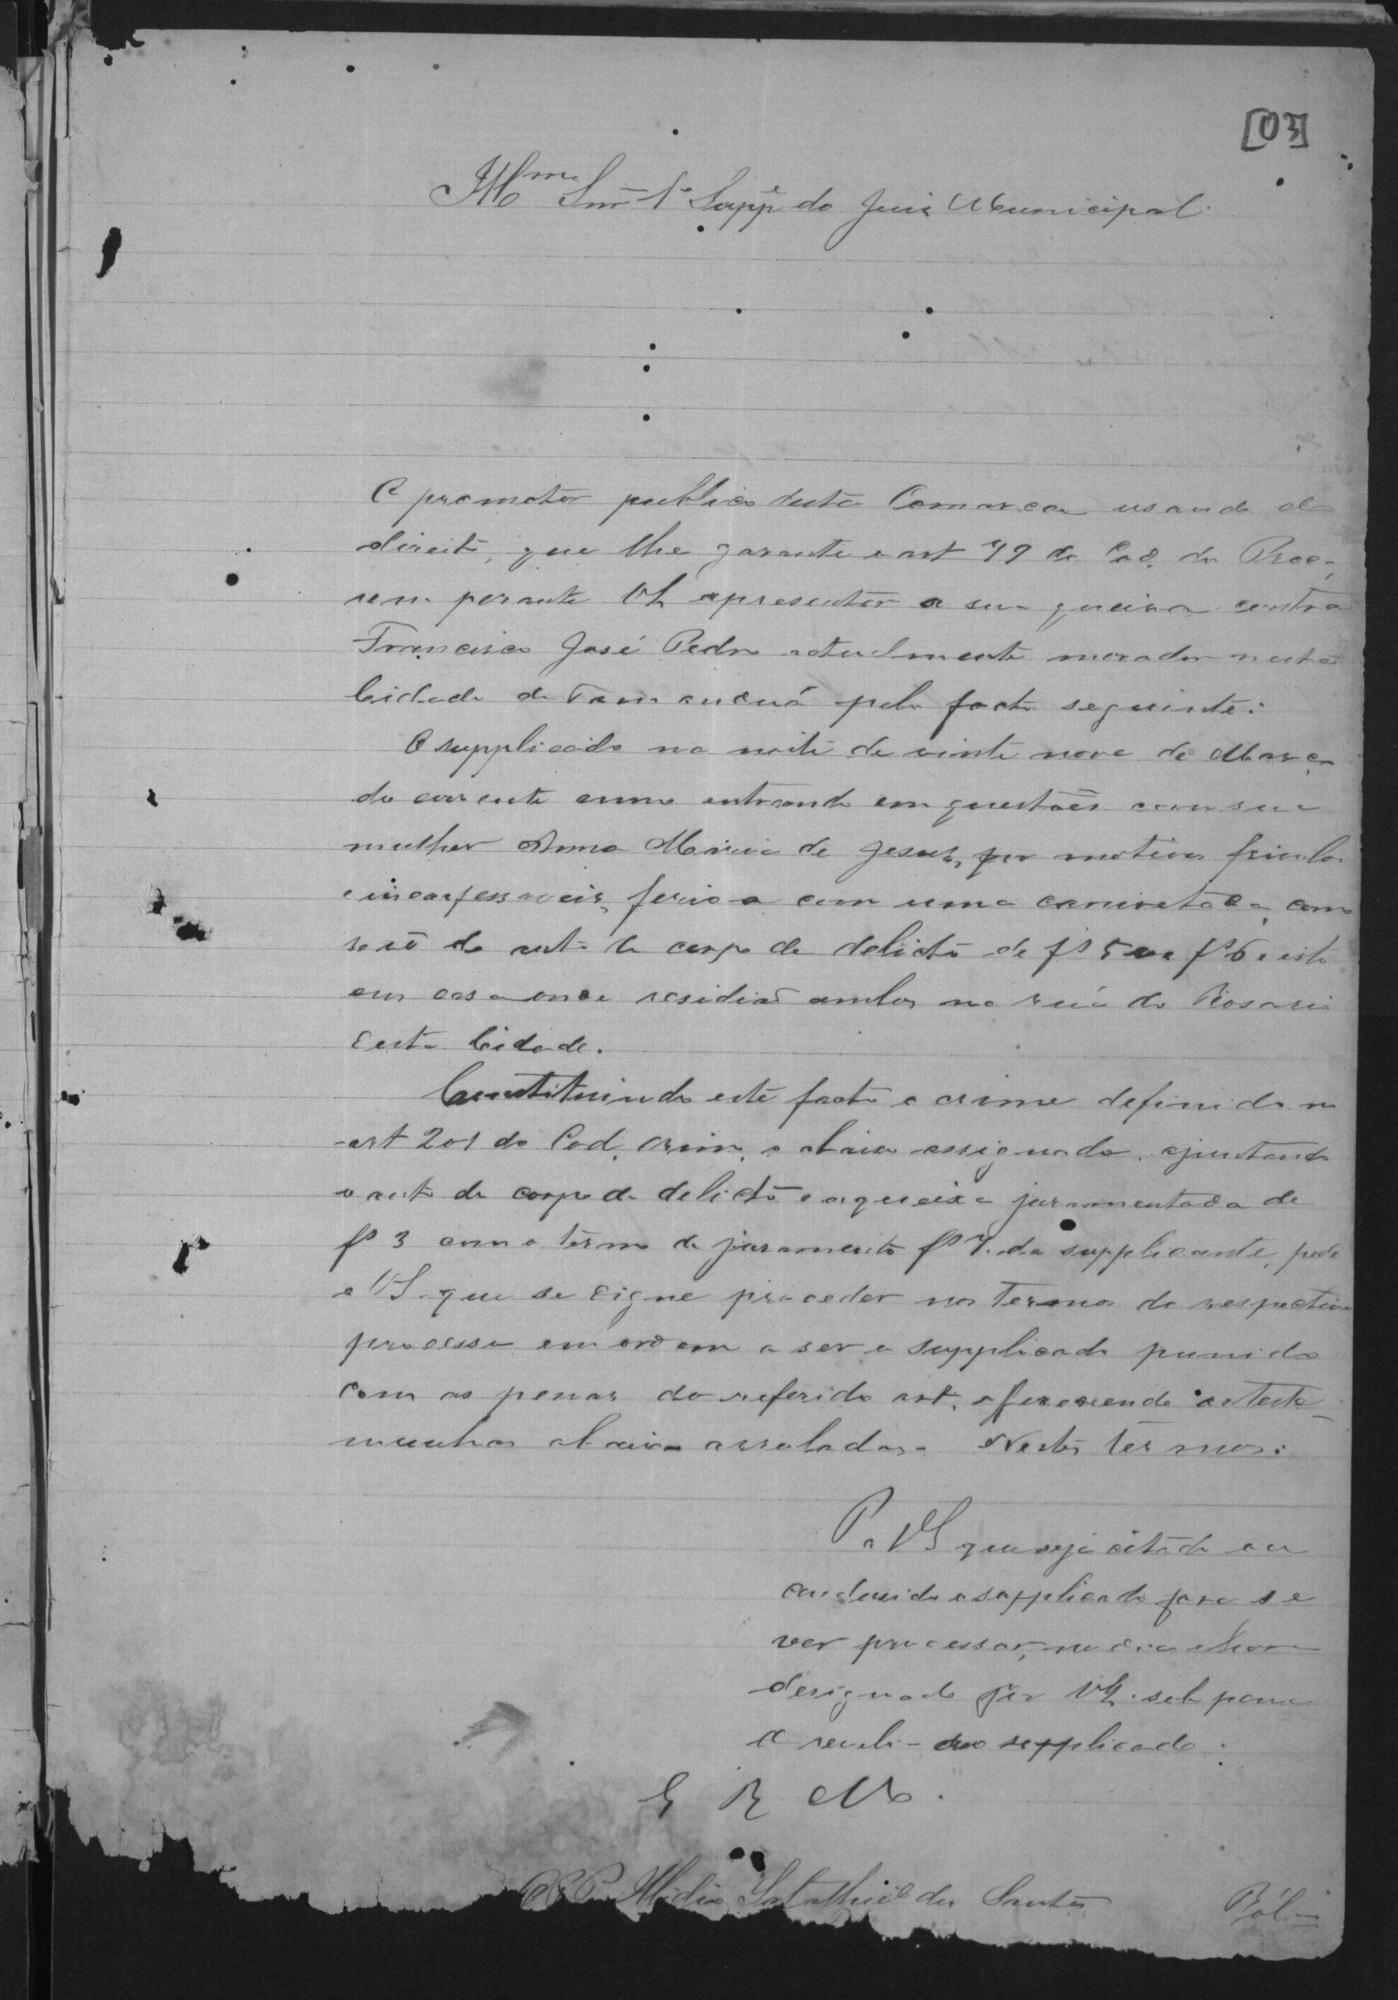 [03]
Illmo Snr 1º Suppe do Juiz Municipal.
O promotor publico desta Comarca usando do
direito, que lhe garante o art 79 do Cod. do Proc.,
vem perante VS apresentar a sua queixa contra
Francisco José Pedro actualmente morador nesta
Cidade de pelo facto seguinte:
O supplicado na noite de vinte nove de Março
do corrente anno entrando em questões com sua
mulher Anna Maria de Jesus, por motivos frivolos
e inconfessaveis, ferio-a com uma canivetada, como
se vê do auto de corpo de delicto de fs 5 a fs 6 e isto
em casa onde residião ambos na rua do Rosario
desta Cidade.
Constituindo este facto o crime definido no
art 201 do Cod. Crim. o abaixo assignado, ajuntando
o auto de corpo de delicto e a queixa juramentada de
fs 3 com o termo de juramento fs 7. da supplicante, pede
a VS. que se digne proceder nos termos do respectivo
processo em ordem a ser o supplicado punido
com as penas do referido art. offerecendo as teste-
munhas abaixo arroladas. Nestes termos:
P. a VS que seja citado ou
conduzido o supplicado para se
ver processar, no dia e hora
designado por VS. sob pena
a revelia do supplicado.
E R M.
O P P. Salathiel dos Santos